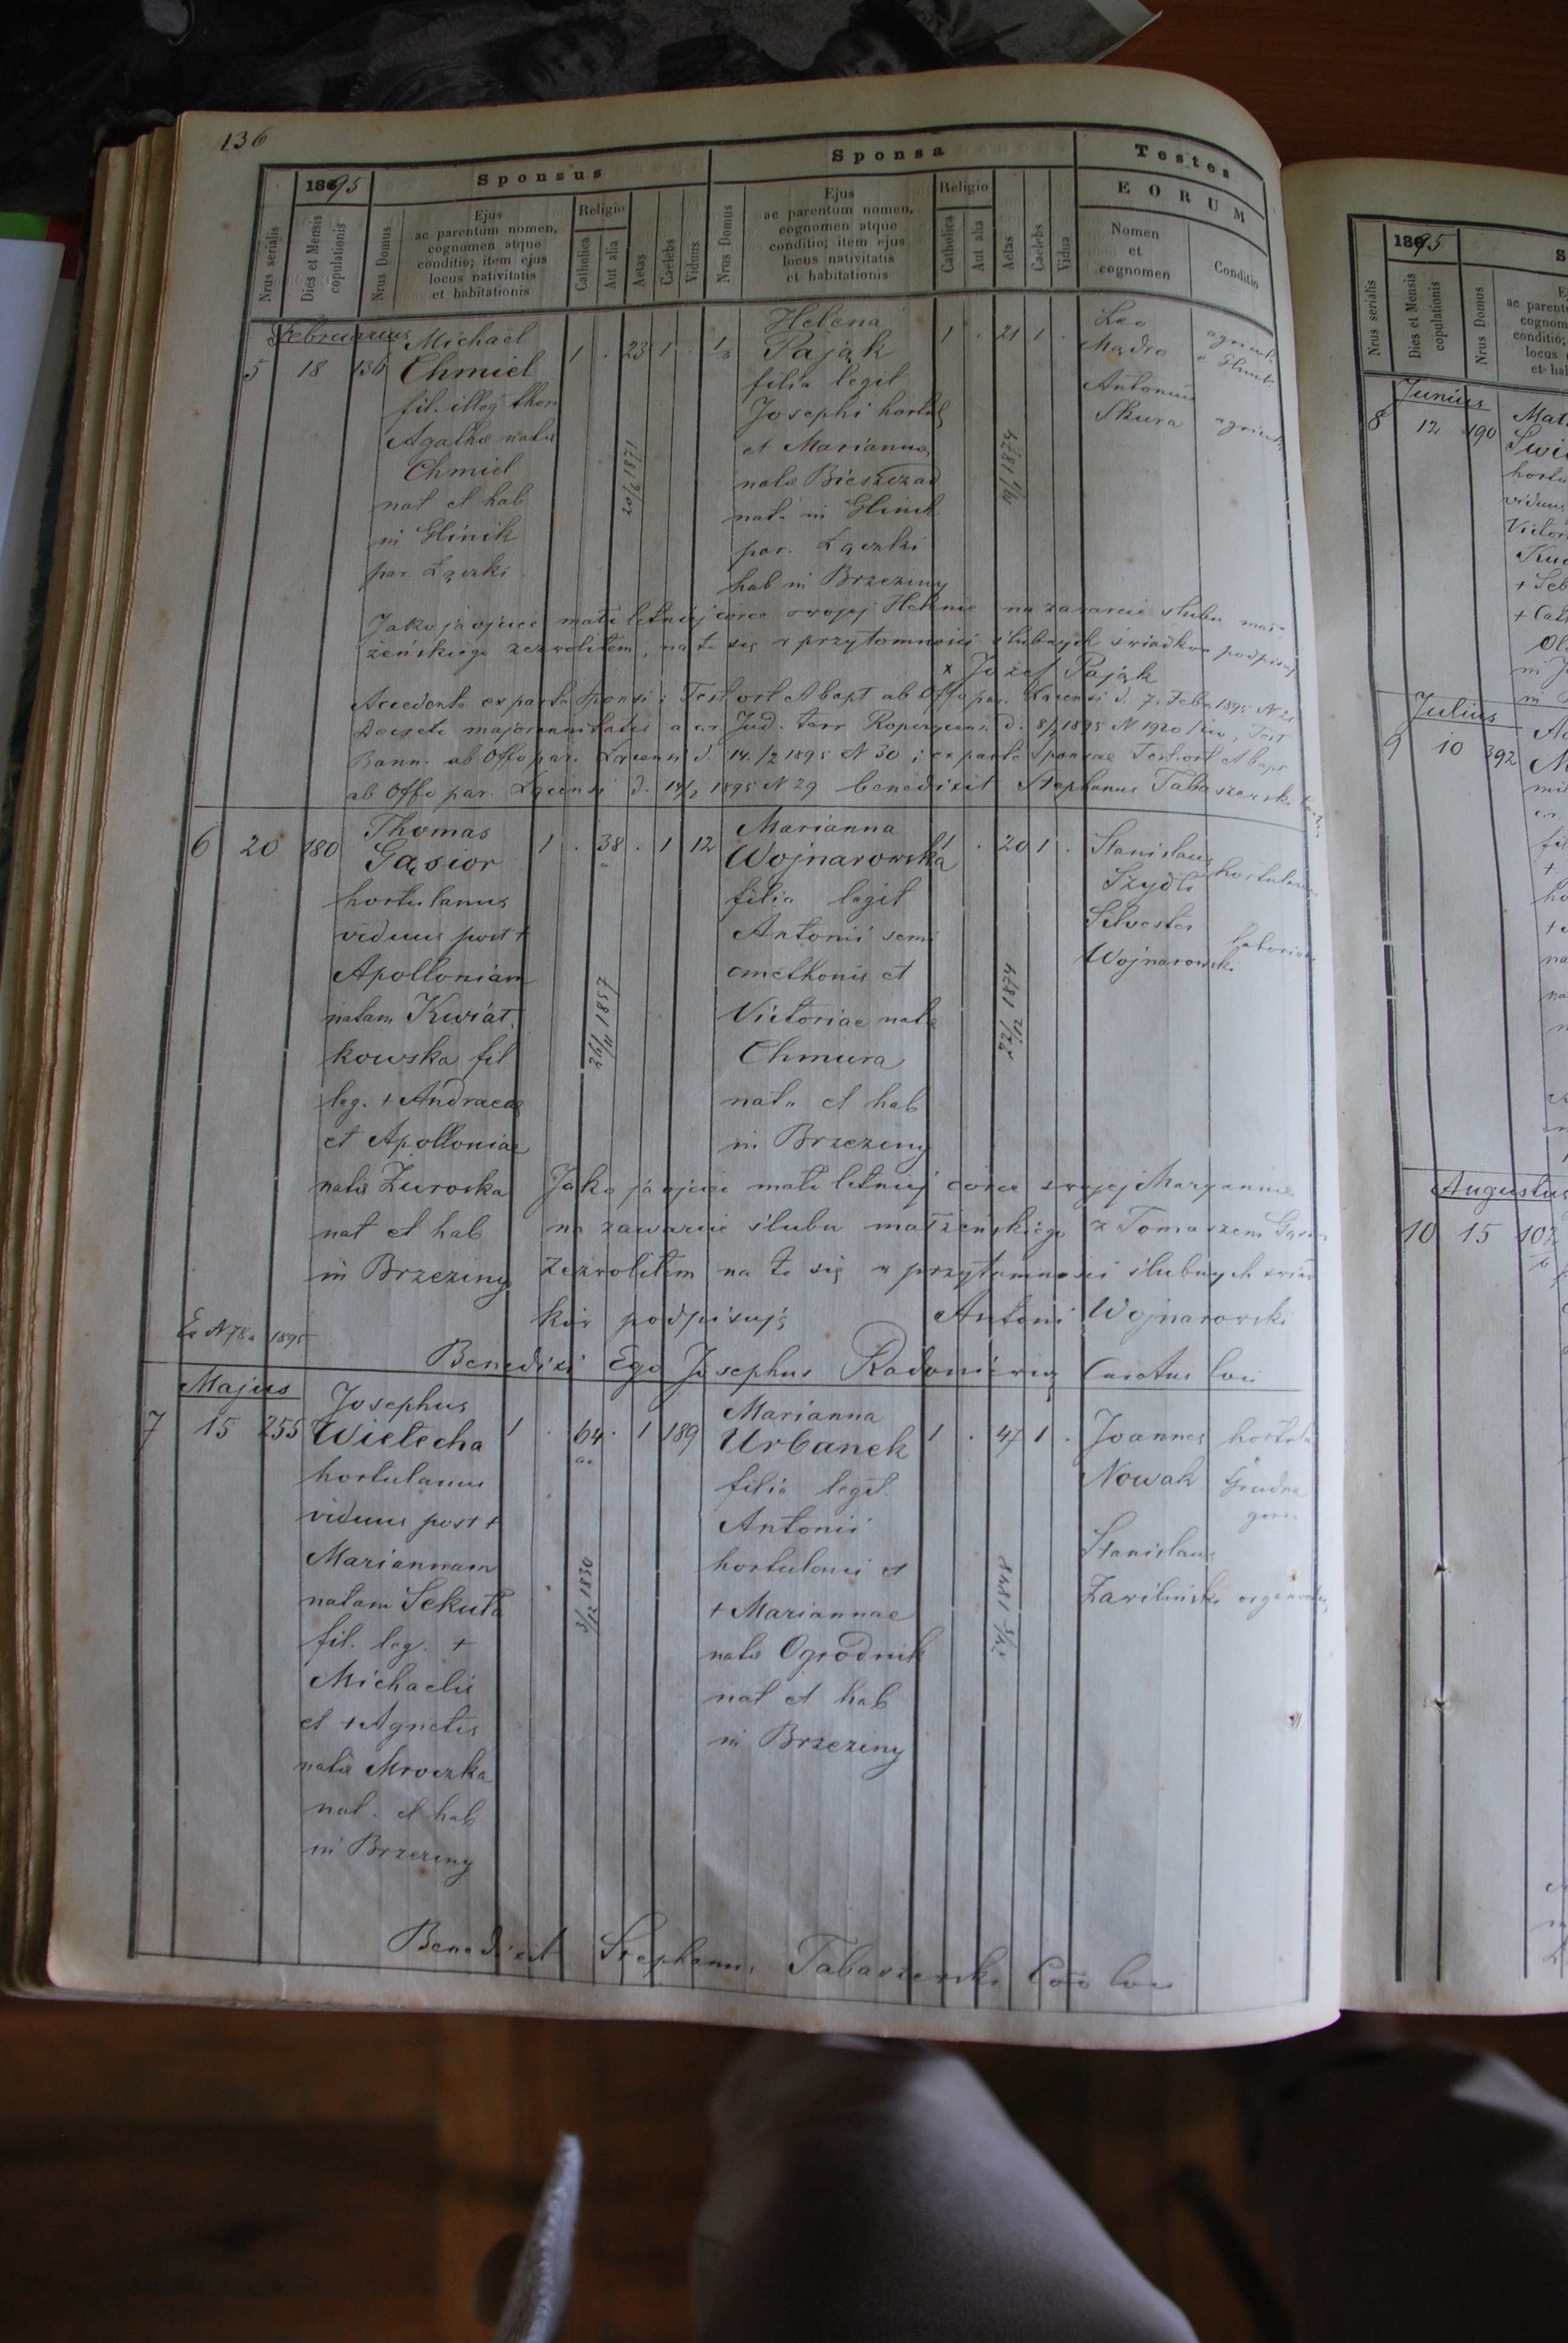 136
1895
Sponsus
Sponsa
Testes
EORUM
Nrus serialis
Dies et Mensis copulationis
Nrus Domus
Ejus
ac parentum nomen,
cognomen atque
conditio; item ejus
locus nativitatis
et habitationis
Religio
Catholica
Aut alia
Aetas
Caelebs
Viduus
Nrus Domus
Ejus
ac parentum nomen,
cognomen atque
conditio; item ejus
locus nativitatis
et habitationis
Religio
Catholica
Aut alia
Aetas
Caelebs
Vidua
Nomen
et
cognomen
Conditio
Februarius
5 18 136
Michael
Chmiel
fil. illeg thori
Agathæ natæ
Chmiel
nat et hab
in Glinik
par. Łączki
1 . 23 1 .
1871
Helena
Pająk
filia legit
Josephi hortul
et Marianna
natæ Bieszczad
nat. in Glinik
par. Łączki
hab in Brzeziny
1 . 21 1 .
1874
Leo
Madro
Antonius
Skura
Jako ja ojciec małoletniej córce swojej Helenie na zawarcie ślubu mał-
żeńskiego zezwoliłem, na to się w przytomności ślubnych świadków podpisuję
x Józef Pająk
Accedente ex parte Sponsi: Test ort et bapt ab Offo par. d. 7. Feb. 1895 N 21
Decreto majorennitatis a c.r. Jud. terr Ropczycensi d. 8/2 1895 N 1920 Test
Bann. ab Offo par. d. 14./2 1895 N 30; ex parte Sponsae Test ort et bapt
ab Offo par. d. 14/2 1895 N 29 benedixit Stephanus Tabaszewski
6 20 180
Thomas
Gąsior
hortulanus
viduus post +
Apolloniam
natam Kwiat
kowska fil
leg. + Andraeae
et Apolloniae
natæ Żuroska
nat et hab
in Brzeziny
1 . 38 . 1 12
1857
Marianna
Wojnarowska
filia legit
Antonii semi
cmethonis et
Victoriae natæ
Chmura
nata et hab
in Brzeziny
1 . 20 1 .
1874
Stanislaus
Szydło
hortulanus
Silvester
Wojnarowski
Jako ja ojciec małoletniej córce swojej Maryannie
na zawarcie ślubu małżeńskiego z Tomaszem
zezwoliłem na to się w przytomności ślubnych świad
ków podpisuję Antoni Wojnarowski
Ex N 78 1895
Benedixi Ego Josephus Radoniewicz Curatus loci
Majus
7 15 255
Josephus
Wielecha
hortulanus
viduus post +
Mariannam
natam Sekuła
fil. leg. +
Michaelis
et + Agnetis
natæ Mroczka
nat. et hab
in Brzeziny
1 . 64 . 1 189
3/12 1830
Marianna
Urbanek
filia legit.
Antonii
hortulani et
+ Mariannae
natæ Ogrodnik
nat et hab
in Brzeziny
1 . 47 1 .
1848
Joannes
Nowak
Grudna
Stanislaus
Zawiliński
Benedixit Stephanus Tabaszewski Coo loci
1895
Nrus serialis
Dies et Mensis copulationis
Nrus Domus
Junius
8 12 190
viduus
Julius
9 10 392
Augustus
10 15 102